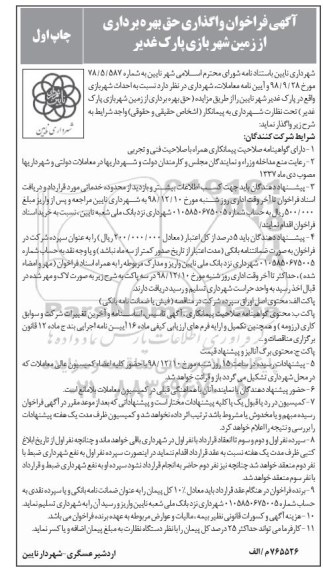 آگهی فراخوان واگذاری حق بهره برداری
از زمین شهربازی پارک غدیر
چاپ اول
شهرداری نایین
شهرداری نایین باستناد نامه شورای محترم اسلامی شهر نایین به شماره ۷۸/۵/۵۸۷
مورخ ۹۸/۹/۲۸ و آیین نامه معاملات، شهرداری در نظر دارد نسبت به احداث شهربازی
واقع در پارک غدیر شهر نایین را از طریق مزایده (حق بهره برداری از زمین شهربازی پارک
غدیر) تحت نظارت شهرداری به پیمانکار (اشخاص حقیقی و حقوقی) واجد شرایط به
شرح زیر واگذار نماید:
شرایط شرکت کنندگان:
۱- دارای گواهینامه صلاحیت پیمانکاری همراه با صلاحیت فنی و تجربی
۲- رعایت منع مداخله وزراء و نمایندگان مجلس و کارمندان دولت و شهرداریها در معاملات دولتی و شهرداریها
مصوب دی ماه ۱۳۳۷
۳- پیشنهاد دهندگان باید جهت کسب اطلاعات بیشتر و بازدید از محدوده خدماتی مورد قرارداد و دریافت
اسناد فراخوان تا آخر وقت اداری روز شنبه مورخ ۹۸/۱۲/۱۰ به شهرداری نایین مراجعه و پس از واریز مبلغ
۵۰۰/۰۰۰ ریال به حساب شماره ۰۱۰۵۸۵۰۶۷۵۰۰۵ شهرداری نزد بانک ملی شعبه نایین، نسبت به خرید اسناد
فراخوان اقدام نمایند.
۴- پیشنهاد دهندگان باید ۵ درصد از کل اعتبار (معادل ۲۰۰/۰۰۰/۰۰۰ ریال) را به عنوان سپرده شرکت در
فراخوان به صورت ضمانتنامه بانکی (مدت اعتبار از تاریخ صدور کمتر از سه ماه نباشد) و یا وجه نقد به حساب شماره
۰۱۰۵۸۵۰۶۷۵۰۰۵ شهرداری نزد بانک ملی نایین واریز و مدارک مربوطه را به همراه اسناد فراخوان (مهر و امضاء
شده)، حداکثر تا آخر وقت اداری روز شنبه مورخ ۹۸/۱۲/۱۰ در سه پاکت به شرح زیر به صورت لاک و مهر شده در
قبال اخذ رسید به واحد حراست شهرداری تسلیم و رسید دریافت دارند.
پاکت الف محتوی اصل اوراق سپرده شرکت در مناقصه (فیش یا ضمانت نامه بانکی)
پاکت ب محتوی گواهینامه صلاحیت پیمانکاری، آگهی تاسیس، اساسنامه و آخرین تغییرات شرکت و سوابق
کاری (رزومه) و همچنین تکمیل و ارایه فرم های ارزیابی کیفی ماده ۱۶ آیین نامه اجرایی بند ج ماده ۱۲ قانون
برگزاری مناقصات و...
پاکت ج محتوی برگ آنالیز و پیشنهاد قیمت
۵- پیشنهادات رسیده در ساعت ۱۵ روز شنبه مورخ ۹۸/۱۲/۱۰ با حضور کلیه اعضاء کمیسیون عالی معاملات که
در محل شهرداری تشکیل می گردد باز و قرائت خواهد شد.
۶- حضور پیشنهاد دهندگان یا نماینده آنان با هماهنگی قبلی در کمیسیون معاملات بلامانع است.
۷- کمیسیون در رد یا قبول یک یا کلیه پیشنهادات مختار است و پیشنهاداتی که بعد از موعد مقرر در آگهی فراخوان
رسیده و مبهم و یا مخدوش یا مشروط باشد ترتیب اثر داده نخواهد شد و کمیسیون ظرف مدت یک هفته پیشنهادات
را بررسی و نتیجه را اعلام خواهد کرد.
۸- سپرده نفر اول و دوم و سوم تا انعقاد قرارداد با نفر اول در شهرداری باقی خواهد ماند و چنانچه نفر اول از تاریخ ابلاغ
کتبی ظرف مدت یک هفته نسبت به عقد قرارداد اقدام ننماید در اینصورت سپرده نفر اول به نفع شهرداری ضبط و با
نفر دوم منعقد خواهد شد چنانچه نیز نفر دوم حاضر به انجام قرارداد نشود سپرده او به نفع شهرداری ضبط و قرارداد
با نفر سوم منعقد خواهد شد.
۹- برنده فراخوان در هنگام عقد قرارداد باید معادل ۱۰٪ کل پیمان را به عنوان ضمانت نامه بانکی و یا سپرده نقدی به
حساب شماره ۰۱۰۵۸۵۰۶۷۵۰۰۵ شهرداری نزد بانک ملی شعبه نایین واریز و رسید آن را به شهرداری تسلیم نماید.
۱۰- هزینه آگهی و کسورات قانونی نظیر بیمه، مالیات و عوارض مربوطه به عهده برنده فراخوان می باشد.
۱۱- کارفرما می تواند حداکثر ۲۵ درصد کل پیمان را با نظر دستگاه نظارت به مبلغ پیمان اضافه و یا کسر نماید.
۷۶۵۵۲۶/م الف
اردشیر عسگری - شهردار نایین